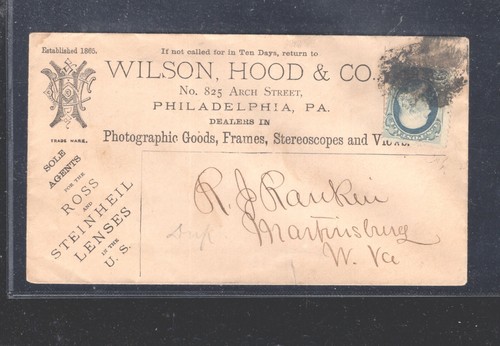 Established 1865.
If not called for in Ten Days, return to
WILSON, HOOD & CO.,
No. 825 ARCH STREET,
PHILADELPHIA, PA.
DEALERS IN
Photographic Goods, Frames, Stereoscopes and Views.
TRADE MARK.
SOLE
AGENTS
FOR THE
ROSS
AND
STEINHEIL
LENSES
IN THE
U. S.
R. J. Rankin
Martinsburg
W. Va